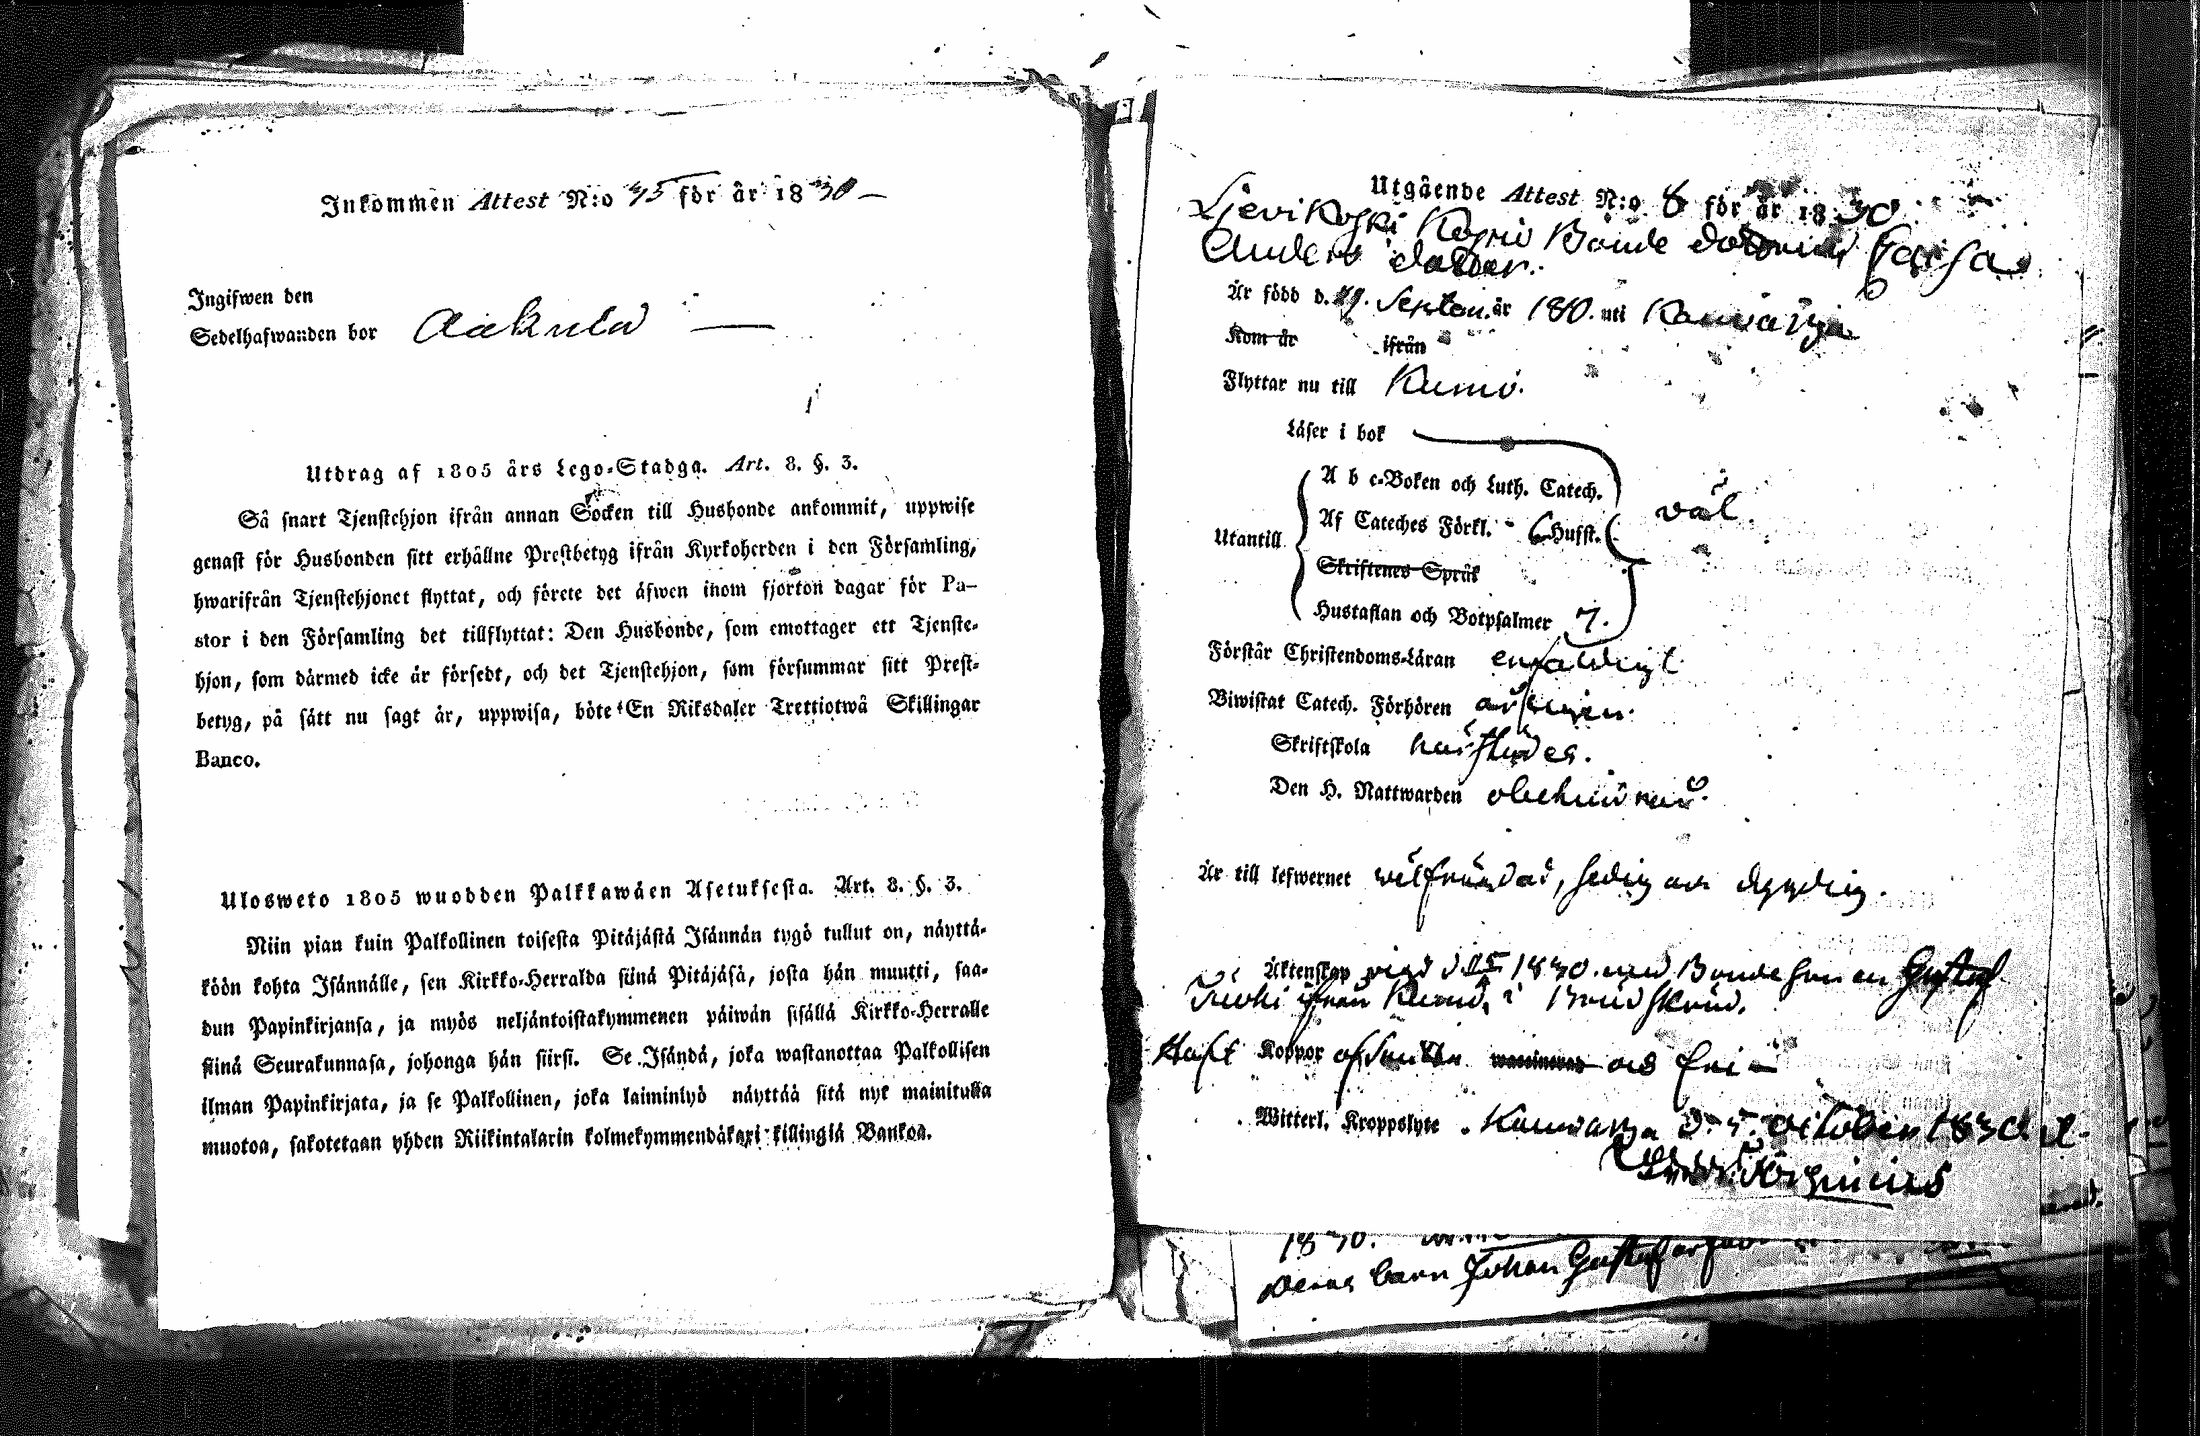 Inkommen Attest N:o 45 för år 1830
Ingifwen den
Sedelhafwanden bor Aakula
Utdrag af 1805 års Lego-Stadga. Art. 8. §. 3.
Så snart Tjenstehjon ifrån annan Socken till Husbonde ankommit, uppwise
genast för Husbonden sitt erhållne Prestbetyg ifrån Kyrkoherden i den Församling,
hwarifrån Tjenstehjonet flyttat, och förete det äfwen inom fjorton dagar för Pa-
stor i den Församling det tillflyttat: Den Husbonde, som emottager ett Tjenste-
hjon, som därmed icke är försedt, och det Tjenstehjon, som försummar sitt Prest-
betyg, på sätt nu sagt är, uppwisa, böte En Riksdaler Trettiotwå Skillingar
Banco.
Ulosweto 1805 wuodden Palkkawäen Asetuksesta. Art. 8. §. 3.
Niin pian kuin Palkollinen toisesta Pitäjästä Isännän tygö tullut on, näyttä-
köön kohta Isännälle, sen Kirkko-Herralda siinä Pitäjäsä, josta hän muutti, saa-
dun Papinkirjansa, ja myös neljäntoistakymmenen päiwän sisällä Kirkko-Herralle
siinä Seurakunnasa, johonga hän siirsi. Se Isändä, joka wastanottaa Palkollisen
ilman Papinkirjata, ja se Palkollinen, joka laiminlyö näyttää sitä nyt mainitulla
muotoa, sakotetaan yhden Riikintalarin kolmekymmendäkaxi killingiä Bankoa.
Utgående Attest N:o 8 för år 1830
Bonde dottren Caisa
Anders dotter.
Är född d. 29. Septem. år 1810. uti
Kom år ifrån
Flyttar nu till Kumo.
Läser i bok
A b c-Boken och Luth. Catech. väl.
Utantill Af Cateches Förkl. 6 Hufst.
Skriftenes Språk
Hustaflan och Botpsalmer 7.
Förstår Christendoms-Läran enfaldigt
Biwistat Catech. Förhören årligen.
Skriftskola
Den H. Nattwarden obehindrad.
Är till lefwernet wälfräjdad, sedig och dygdig.
Äktenskap vigd d. 1830 med Bonde sonen Gustaf
ifrån Kumo, i Brudskrud.
Haft Koppor waccinerad och fri
Witterl. Kroppslyte d. 5. October 1830
1830.
Deras barn Johan Gustaf